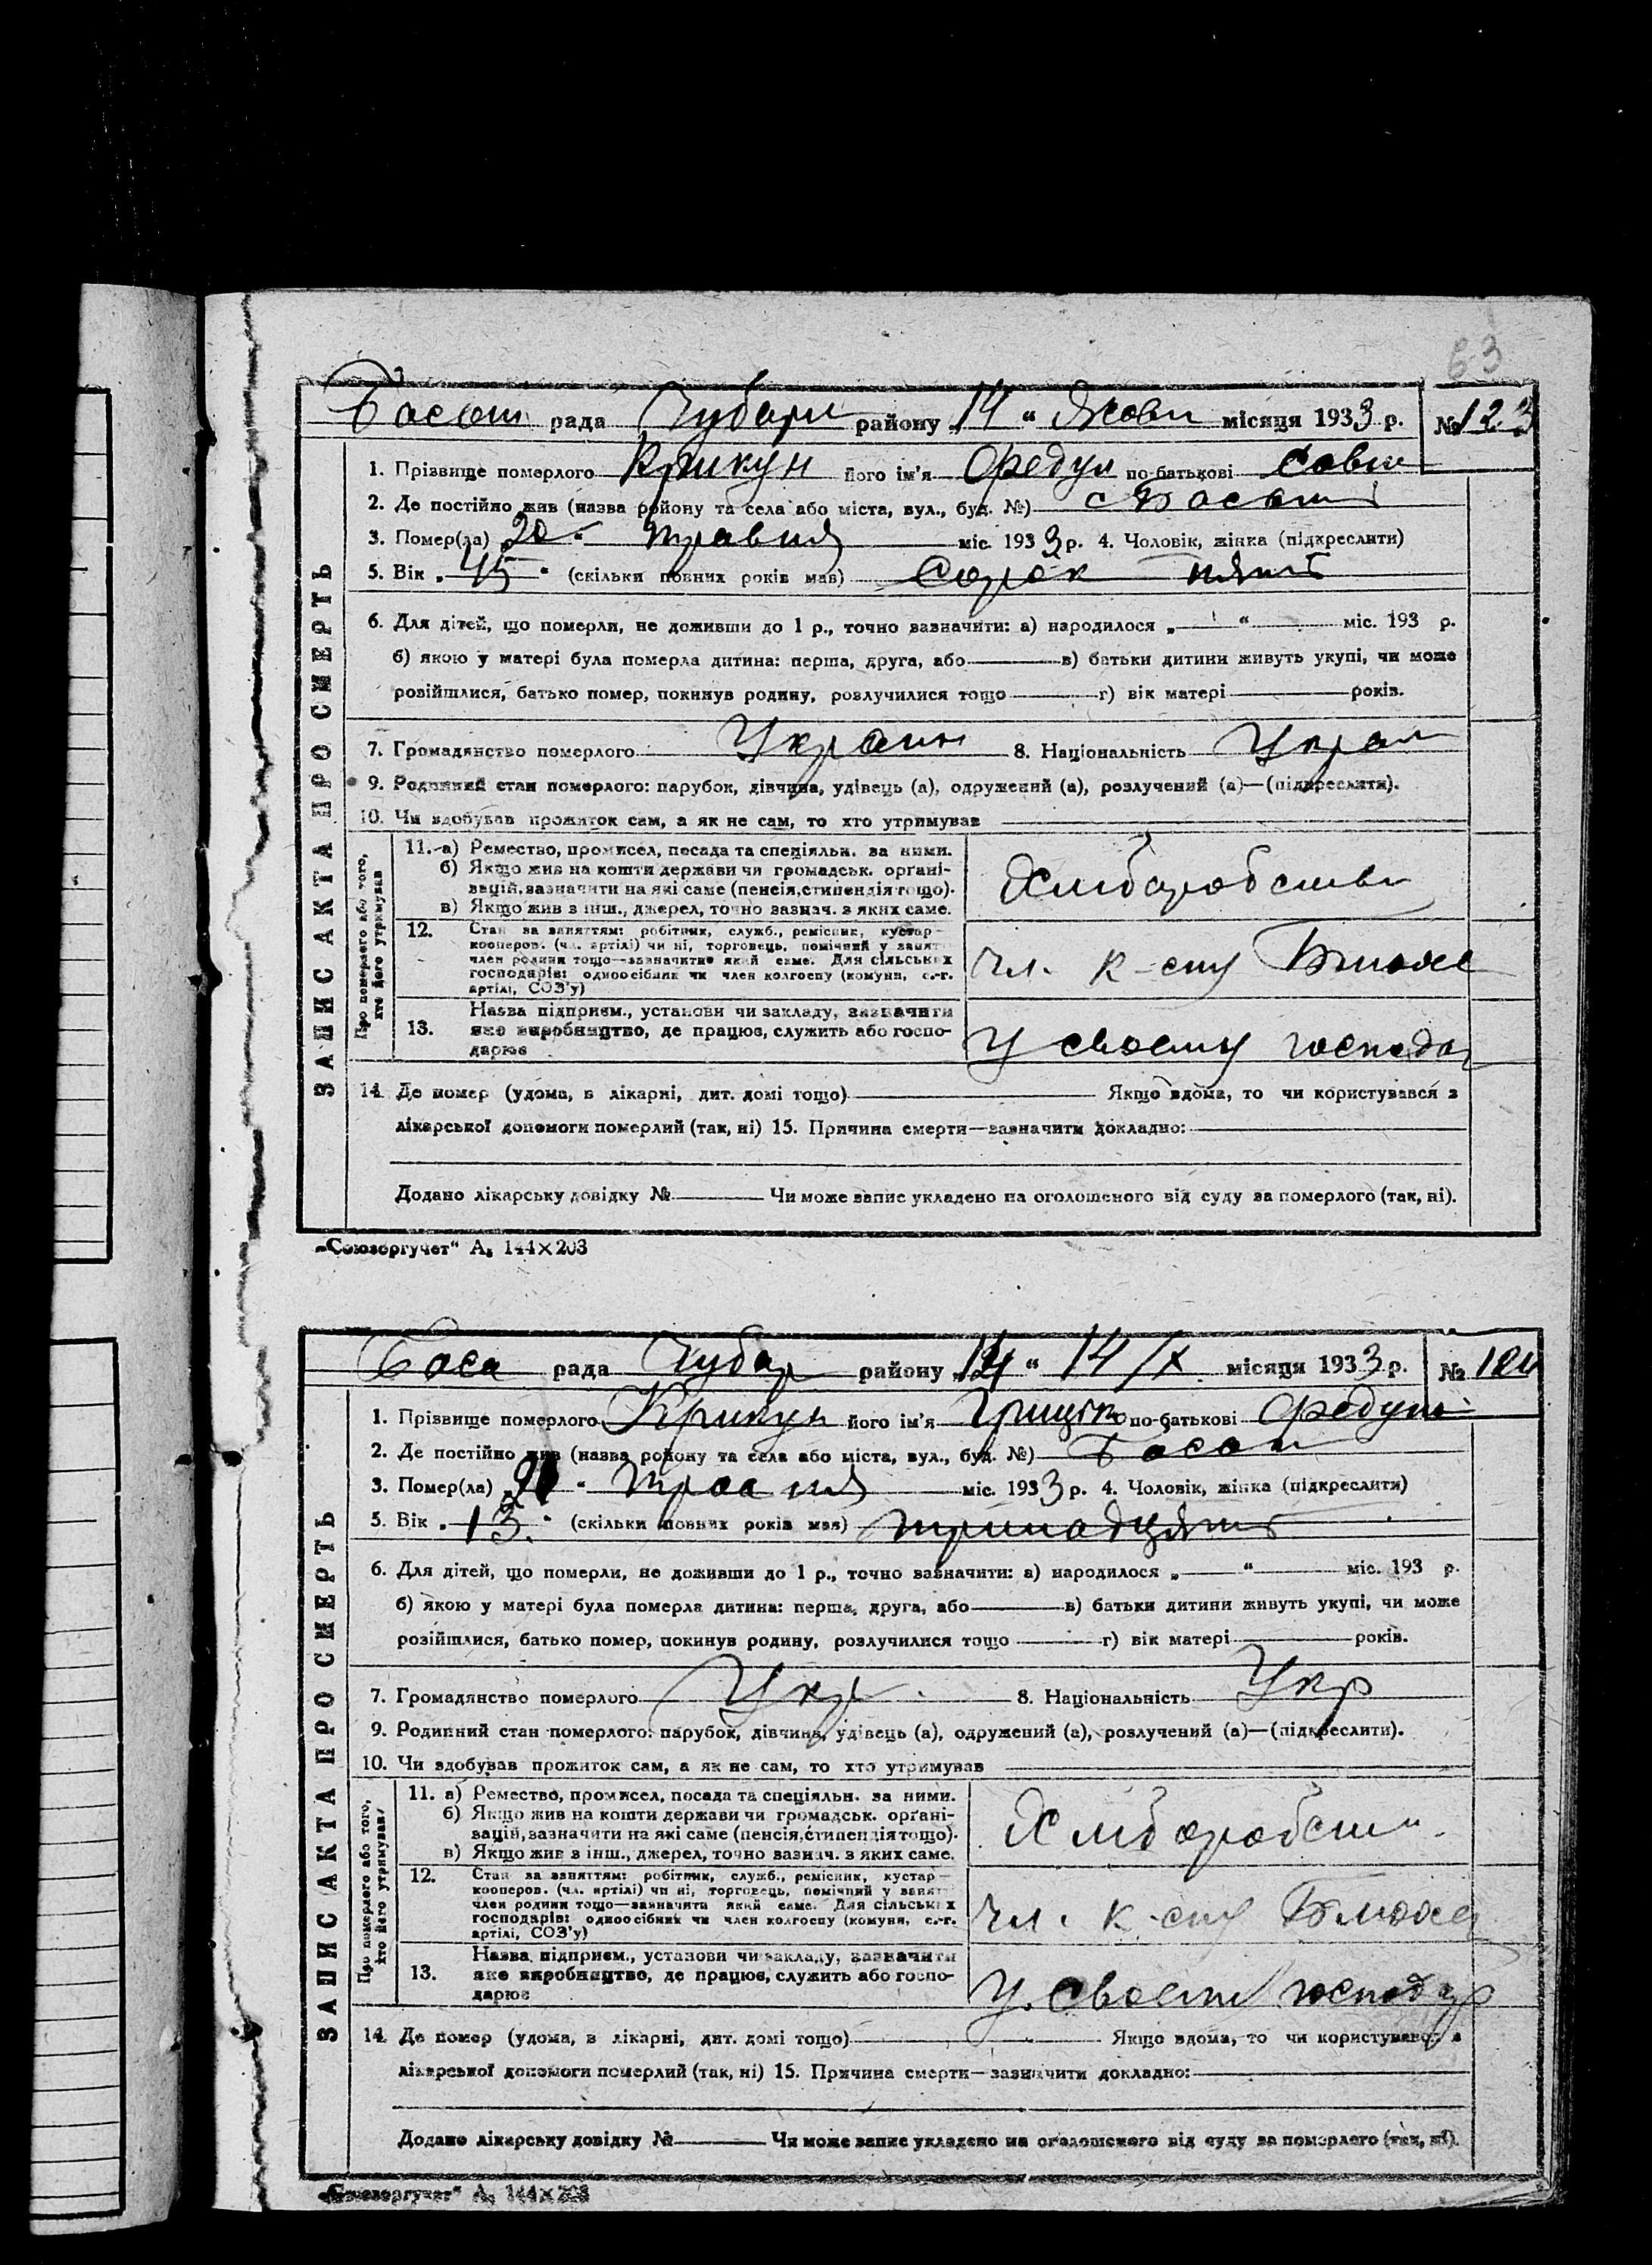 63
Босот рада Чубари району „14 “ Жовт місяця 1933 р. № 123
ЗАПИС АКТА ПРО СМЕРТЬ
1. Прізвище померлого Крикун його ім'я Федул по-батькові Савк
2. Де постійно жив (назва району та села або міста, вул., буд. №)
3. Помер(ла) „20 “ травня міс. 1933 р. 4. Чоловік, жінка (підкреслити)
5. Вік „45 “ (скільки повних років мав) Сорок пять
6. Для дітей, що померли, не доживши до 1 р., точно зазначити: а) народилося „ “ міс. 193 р.
б) якою у матері була померла дитина: перша, друга, або в) батьки дитини живуть укупі, чи може
розійшлися, батько помер, покинув родину, розлучилися тощо г) вік матері років.
7. Громадянство померлого Украин 8. Національність Украи
9. Родинний стан померлого: парубок, дівчина, удівець (а), одружений (а), розлучений (а)—(підкреслити).
10. Чи здобував прожиток сам, а як не сам, то хто утримував
Про померлого або того, хто його утримував
11. а) Ремество, промисел, посада та спеціяльн. за ними.
б) Якщо жив на кошти держави чи громадськ. органі-
зацій, зазначити на які саме (пенсія, стипендія тощо).
в) Якщо жив з інш., джерел, точно зазнач. з яких саме.
Хліборобство
12. Стан за заняттям: робітник, служб., ремісник, кустар—
кооперов. (чл. артілі) чи ні, торговець, помічний у занят
член родини тощо—зазначити який саме. Для сільських
господарів: одноосібник чи член колгоспу (комуни, с.-г.
артілі, СОЗ'у)
Чл. к-спу
13. Назва підприєм., установи чи закладу, зазначити
яке виробництво, де працює, служить або госпо-
дарює
У своему господар
14. Де помер (удома, в лікарні, дит. домі тощо) Якщо вдома, то чи користувався з
лікарської допомоги померлий (так, ні) 15. Причина смерти—зазначити докладно:
Додано лікарську довідку № Чи може запис укладено на оголошеного від суду за померлого (так, ні).
„Союзоргучет“ А₅ 144×203
Боса рада Чубар району „14 “ 14/X місяця 1933 р. № 124
ЗАПИС АКТА ПРО СМЕРТЬ
1. Прізвище померлого Крикун його ім'я Грицько по-батькові Федул
2. Де постійно жив (назва району та села або міста, вул., буд. №) Босот
3. Помер(ла) „ “ травня міс. 1933 р. 4. Чоловік, жінка (підкреслити)
5. Вік „13. “ (скільки повних років мав) тринадцять
6. Для дітей, що померли, не доживши до 1 р., точно зазначити: а) народилося „ “ міс. 193 р.
б) якою у матері була померла дитина: перша, друга, або в) батьки дитини живуть укупі, чи може
розійшлися, батько помер, покинув родину, розлучилися тощо г) вік матері років.
7. Громадянство померлого Укр 8. Національність Укр
9. Родинний стан померлого: парубок, дівчина, удівець (а), одружений (а), розлучений (а)—(підкреслити).
10. Чи здобував прожиток сам, а як не сам, то хто утримував
Про померлого або того, хто його утримував
11. а) Ремество, промисел, посада та спеціяльн. за ними.
б) Якщо жив на кошти держави чи громадськ. органі-
зацій, зазначити на які саме (пенсія, стипендія тощо).
в) Якщо жив з інш., джерел, точно зазнач. з яких саме.
Хліборобств
12. Стан за заняттям: робітник, служб., ремісник, кустар—
кооперов. (чл. артілі) чи ні, торговець, помічний у занят
член родини тощо—зазначити який саме. Для сільських
господарів: одноосібник чи член колгоспу (комуни, с.-г.
артілі, СОЗ'у)
Чл. к-спу
13. Назва підприєм., установи чи закладу, зазначити
яке виробництво, де працює, служить або госпо-
дарює
У своему господар
14. Де помер (удома, в лікарні, дит. домі тощо) Якщо вдома, то чи користувався з
лікарської допомоги померлий (так, ні) 15. Причина смерти—зазначити докладно:
Додано лікарську довідку № Чи може запис укладено на оголошеного від суду за померлого (так, ні).
„Союзоргучет“ А₅ 144×203